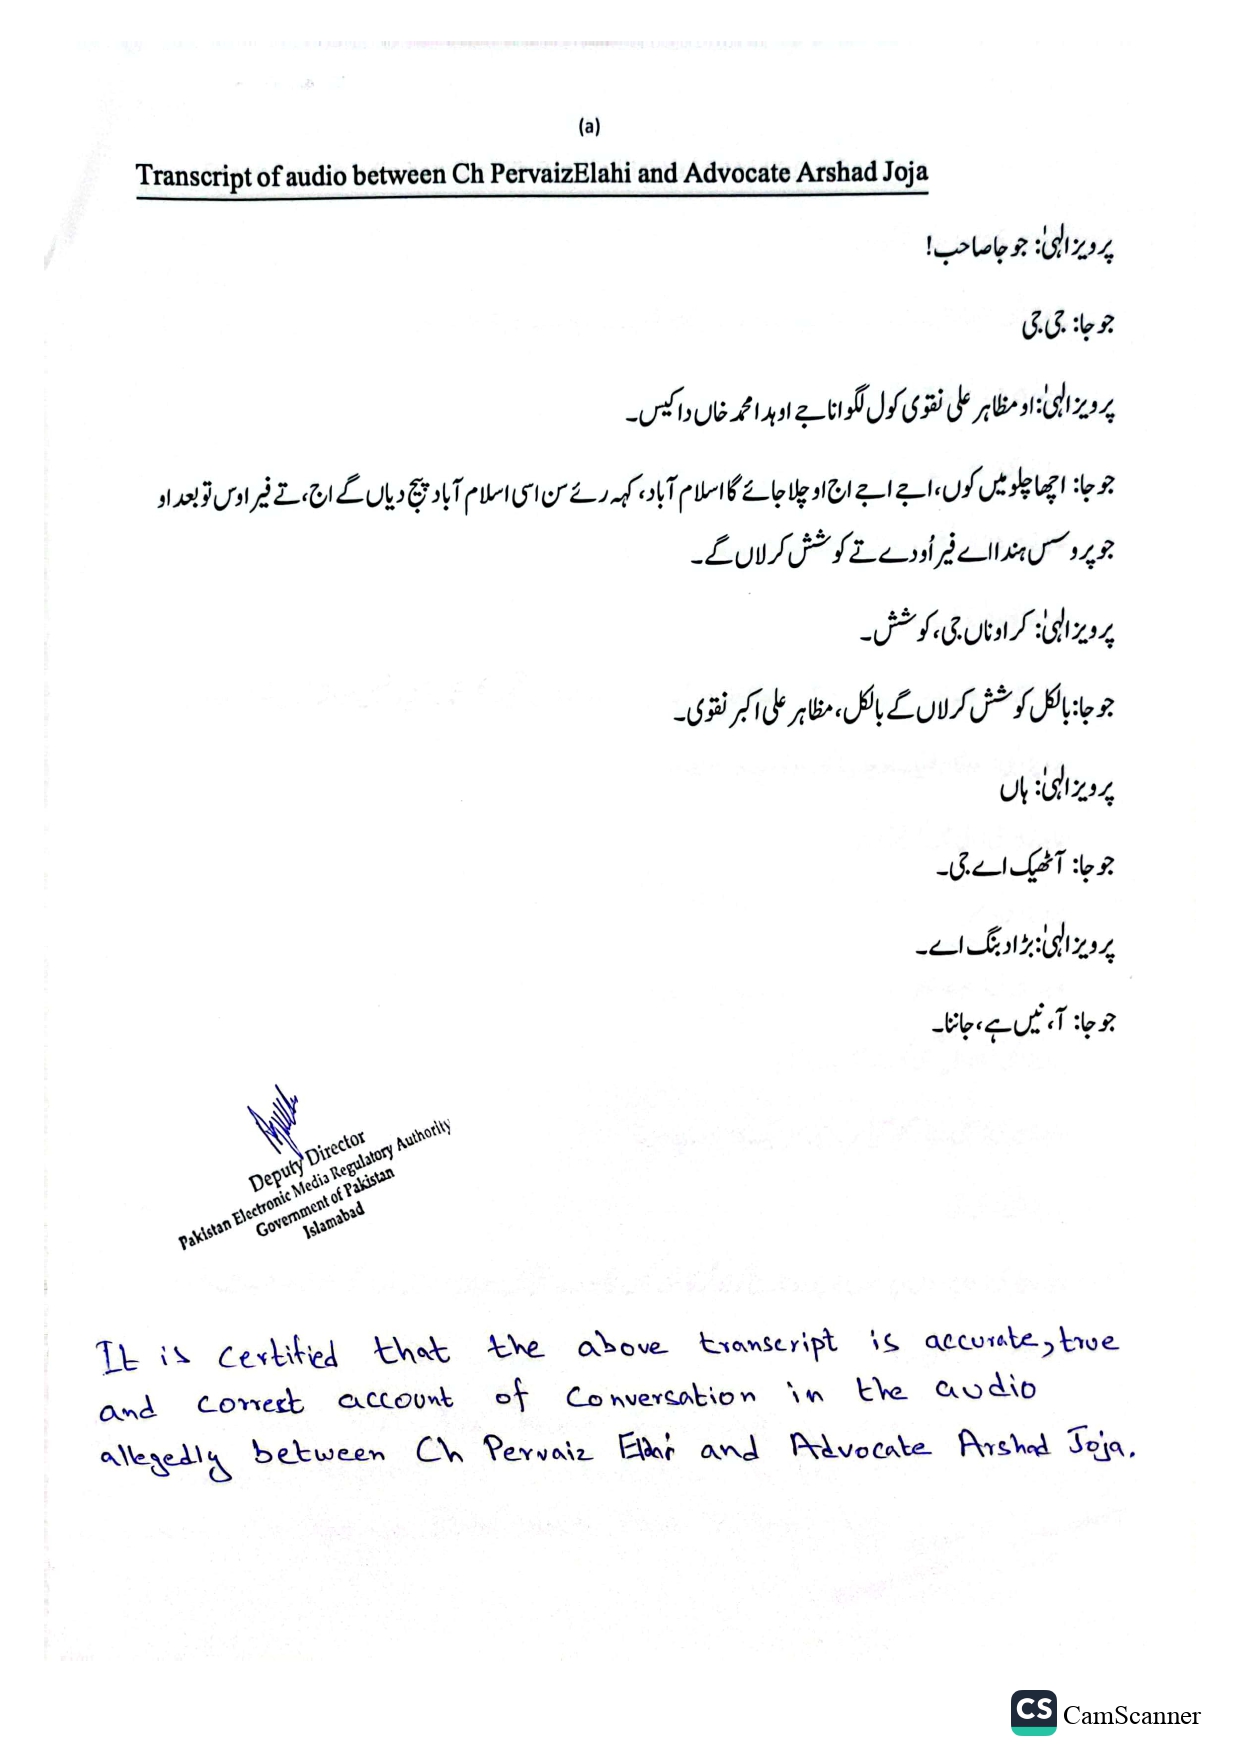 (a)
Transcript of audio between Ch PervaizElahi and Advocate Arshad Joja
پرویز الٰہی: جوجا صاحب!
جوجا: جی جی
پرویز الٰہی: او مظاہر علی نقوی کول لگوانا جے اوہدا محمد خاں دا کیس۔
جوجا: اچھا چلو میں کوں، اجے اجے اج او چلا جائے گا اسلام آباد، کہہ رئے سن اسی اسلام آباد پیج دیاں گے اج، تے فیر اوس تو بعد او
جو پروسس ہندا اے فیر اُودے تے کوشش کرلاں گے۔
پرویز الٰہی: کراوناں جی، کوشش۔
جوجا: بالکل کوشش کرلاں گے بالکل، مظاہر علی اکبر نقوی۔
پرویز الٰہی: ہاں
جوجا: آ ٹھیک اے جی۔
پرویز الٰہی: بڑا دبنگ اے۔
جوجا: آ، نیں ہے، جاننا۔
Deputy Director
Pakistan Electronic Media Regulatory Authority
Government of Pakistan
Islamabad
It is certified that the above transcript is accurate, true
and correct account of Conversation in the audio
allegedly between Ch Pervaiz Elahi and Advocate Arshad Joja.
CS CamScanner